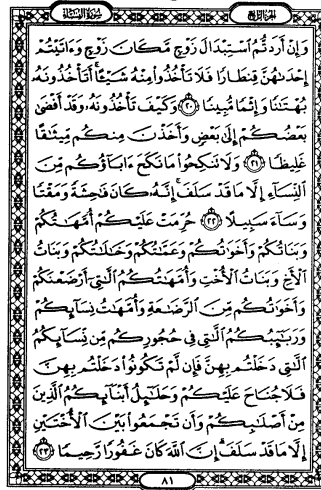 سورة النساء الجزء الرابع
وَإِنْ أَرَدتُّمُ ٱسْتِبْدَالَ زَوْجٍ مَّكَانَ زَوْجٍ وَءَاتَيْتُمْ
إِحْدَىٰهُنَّ قِنطَارًا فَلَا تَأْخُذُوا۟ مِنْهُ شَيْـًٔا أَتَأْخُذُونَهُۥ
بُهْتَٰنًا وَإِثْمًا مُّبِينًا ٢٠ وَكَيْفَ تَأْخُذُونَهُۥ وَقَدْ أَفْضَىٰ
بَعْضُكُمْ إِلَىٰ بَعْضٍ وَأَخَذْنَ مِنكُم مِّيثَٰقًا
غَلِيظًا ٢١ وَلَا تَنكِحُوا۟ مَا نَكَحَ ءَابَآؤُكُم مِّنَ
ٱلنِّسَآءِ إِلَّا مَا قَدْ سَلَفَ إِنَّهُۥ كَانَ فَٰحِشَةً وَمَقْتًا
وَسَآءَ سَبِيلًا ٢٢ حُرِّمَتْ عَلَيْكُمْ أُمَّهَٰتُكُمْ
وَبَنَاتُكُمْ وَأَخَوَٰتُكُمْ وَعَمَّٰتُكُمْ وَخَٰلَٰتُكُمْ وَبَنَاتُ
ٱلْأَخِ وَبَنَاتُ ٱلْأُخْتِ وَأُمَّهَٰتُكُمُ ٱلَّٰتِىٓ أَرْضَعْنَكُمْ
وَأَخَوَٰتُكُم مِّنَ ٱلرَّضَٰعَةِ وَأُمَّهَٰتُ نِسَآئِكُمْ
وَرَبَٰٓئِبُكُمُ ٱلَّٰتِى فِى حُجُورِكُم مِّن نِّسَآئِكُمُ
ٱلَّٰتِى دَخَلْتُم بِهِنَّ فَإِن لَّمْ تَكُونُوا۟ دَخَلْتُم بِهِنَّ
فَلَا جُنَاحَ عَلَيْكُمْ وَحَلَٰٓئِلُ أَبْنَآئِكُمُ ٱلَّذِينَ
مِنْ أَصْلَٰبِكُمْ وَأَن تَجْمَعُوا۟ بَيْنَ ٱلْأُخْتَيْنِ
إِلَّا مَا قَدْ سَلَفَ إِنَّ ٱللَّهَ كَانَ غَفُورًا رَّحِيمًا ٢٣
٨١